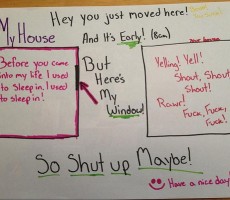 Hey you just moved here!
My House
And It's Early! (8am)
Before you came
into my life I used
to sleep in, I used
to sleep in!
But
Here's
My
Window!
Yelling! Yell!
Shout, Shout
Shout!
Roawr!
Fuck, Fuck,
Fuck, Fuck!
So Shut up Maybe!
Have a nice day!